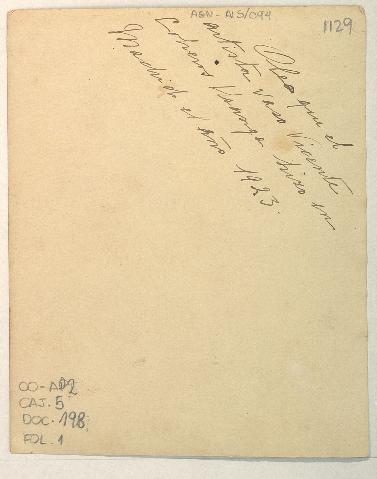 AGN-NS/094
1129
Oleo que el
artista vasco Vicente
Cobreros Uranga hizo en
Madrid. el año 1923.
OO-AP2
CAJ. 5
DOC. 198
FOL. 1